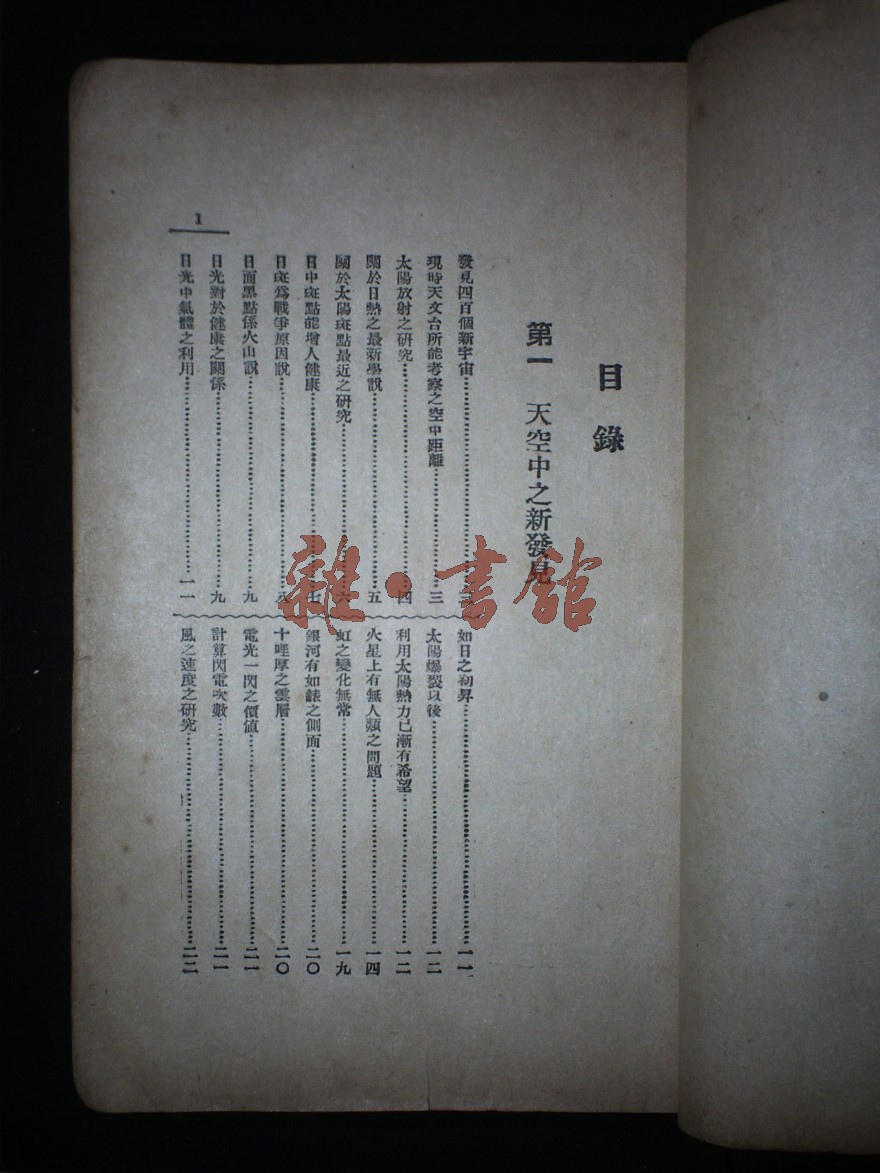 目錄
第一 天空中之新發見
發見四百個新宇宙
現時天文台所能考察之空中距離……三
太陽放射之研究……四
關於日熱之最新學說……五
關於太陽斑點最近之研究……六
日中斑點能增人健康……七
日斑為戰爭原因說……八
日面黑點係火山說……九
日光對於健康之關係……九
日光中氣體之利用……一一
如日之初昇……一一
太陽爆裂以後……一二
利用太陽熱力已漸有希望……一二
火星上有無人類之問題……一四
虹之變化無常……一九
銀河有如錶之側面……二〇
十哩厚之雲層……二〇
電光一閃之價值……二一
計算閃電次數……二一
風之速度之研究……二二
1
雜·書館